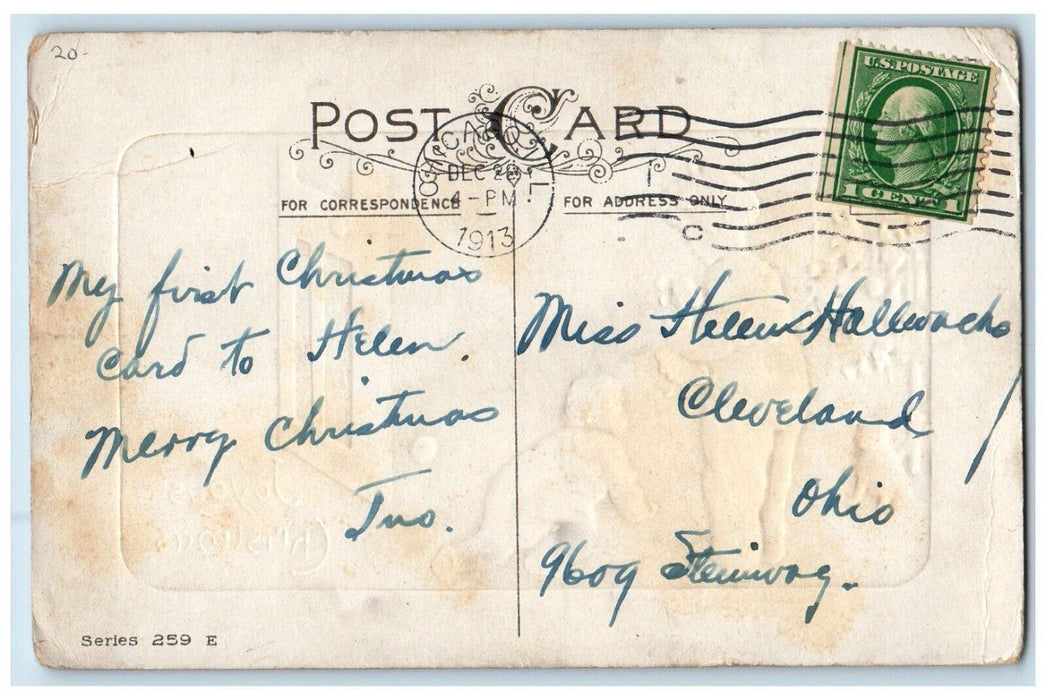 20-
POST CARD
U.S. POSTAGE
1 CENT 1
CHICAGO, ILL.
DEC 20
4-PM
1913
C
FOR CORRESPONDENCE
FOR ADDRESS ONLY
My first Christmas
Card to Helen.
Merry Christmas
Jno.
Miss Helen Hallwachs
Cleveland
Ohio
9609 Steinway.
Joyous
Christmas
Series 259 E